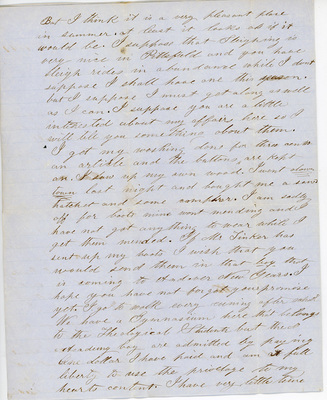 But I think it is a very pleasant place
in summer, at least it looks as if it
would be. I suppose that Sleighing is
very nice in Pittsfield and you have
sleigh rides in abundance while I dont
suppose I shall have one this
but I suppose I must get along as well
as I can. I suppose you are a little
interested about my affairs here so I
will tell you something about them.
I got my washing done for three cents
an article and the buttons are kept
on. I saw up my own wood. I went down
town last night and bought me a saw
hatchet and some I am sadly
off for boots mine want mending and I
have not got anything to wear while I
get them mended. If Mr Tinker has
sent up my boots I wish that you
would send them in that that
is coming to Andover New Years. I
hope you have not forgot your promise
yet. I go to walk every evening after
We have a Gymnasium here that belongs
to the Theological Students but the
Academy boys are admitted by paying
one dollar I have paid and am at full
liberty to use the privilege to my
hearts content. I have very little time